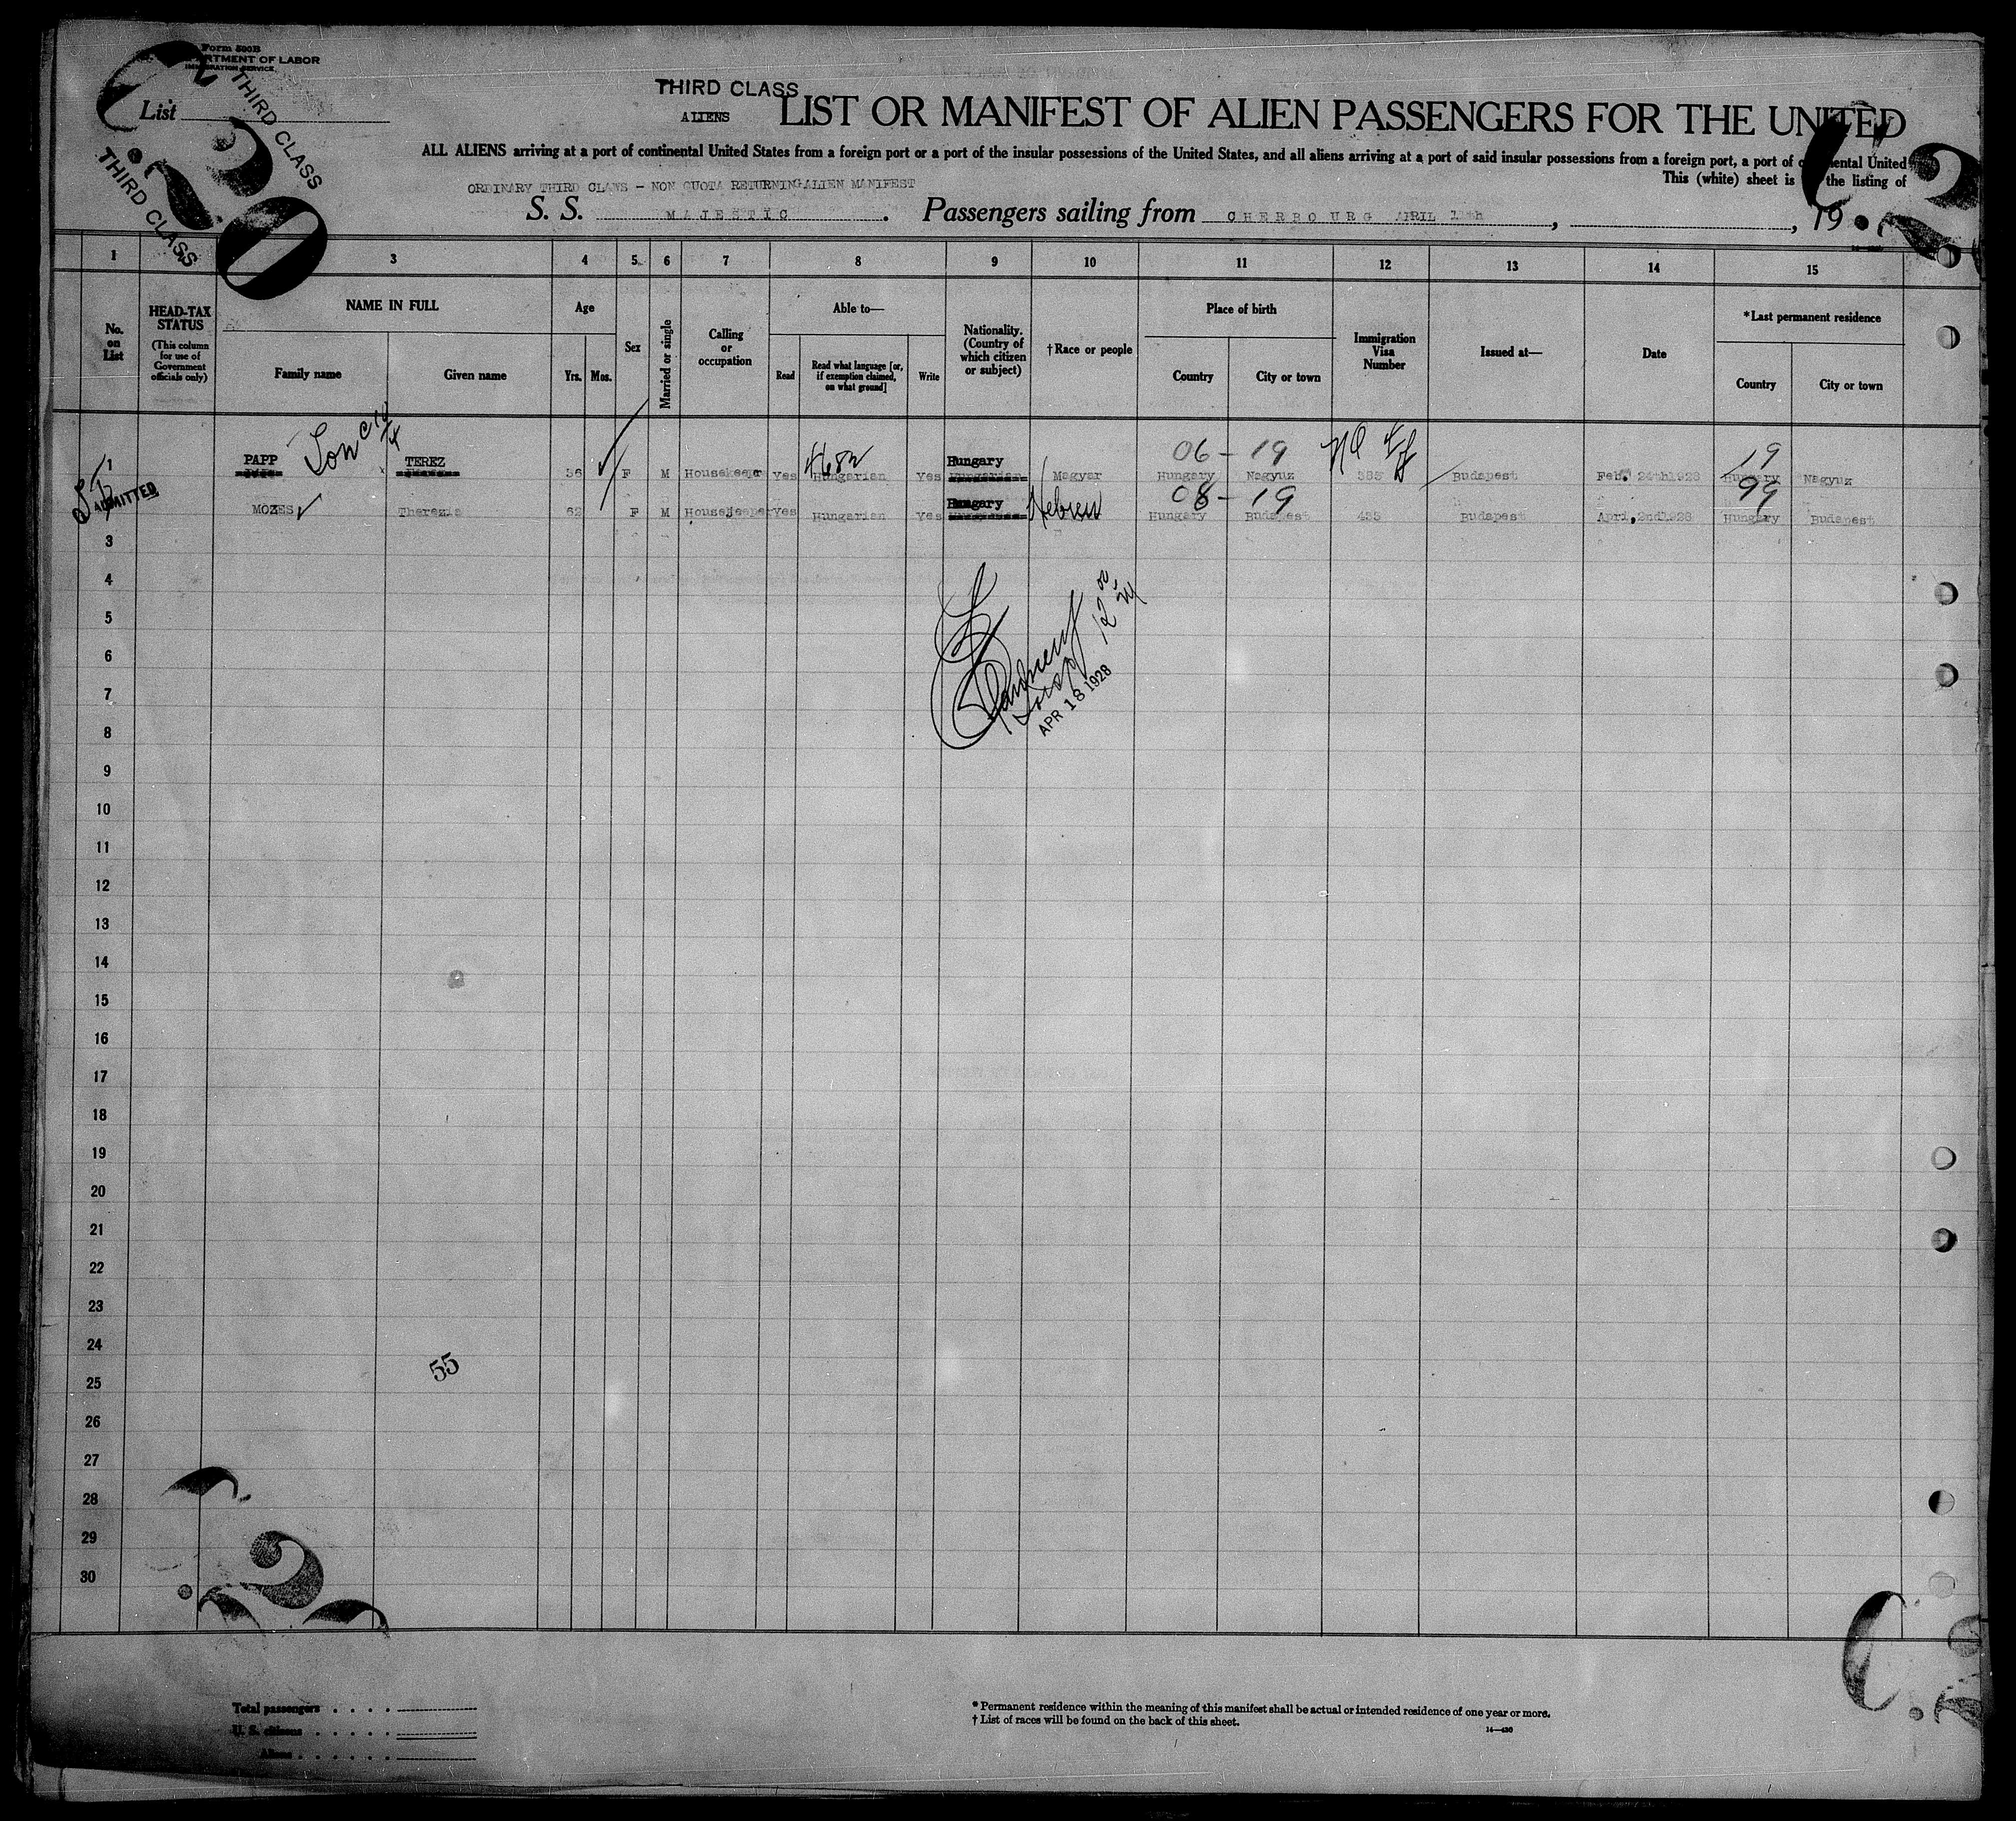 Form 500B
DEPARTMENT OF LABOR
IMMIGRATION SERVICE
THIRD CLASS
THIRD CLASS
List
THIRD CLASS
ALIENS
LIST OR MANIFEST OF ALIEN PASSENGERS FOR THE UNITED
ALL ALIENS arriving at a port of continental United States from a foreign port or a port of the insular possessions of the United States, and all aliens arriving at a port of said insular possessions from a foreign port, a port of continental United
This (white) sheet is the listing of
ORDINARY THIRD CLASS - NON QUOTA RETURNING ALIEN MANIFEST
S. S. MAJESTIC. Passengers sailing from CHERBOURG APRIL, , 19
1 3 4 5 6 7 8 9 10 11 12 13 14 15
No. on List
HEAD-TAX STATUS
(This column for use of Government officials only)
NAME IN FULL
Family name Given name
Age
Yrs. Mos.
Sex
Married or single
Calling or occupation
Able to—
Read
Read what language [or, if exemption claimed, on what ground]
Write
Nationality. (Country of which citizen or subject)
†Race or people
Place of birth
Country City or town
Immigration Visa Number
Issued at—
Date
*Last permanent residence
Country City or town
06 - 19 19
1 PAPP TEREZ 36 F M Housekeeper Yes Hungarian Yes Hungary Magyar Hungary Nagyuz 385 Budapest Feb. 24th1928 Hungary Nagyuz
ADMITTED
08 - 19 99
MOZES Therezia 62 F M Housekeeper Yes Hungarian Yes Hungary Hebrew Hungary Budapest 435 Budapest April,2nd1928 Hungary Budapest
3
4
5
6
7
APR 18 1928
8
9
10
11
12
13
14
15
16
17
18
19
20
21
22
23
24
55
25
26
27
28
29
30
Total passengers
U. S. citizens
Aliens
* Permanent residence within the meaning of this manifest shall be actual or intended residence of one year or more.
† List of races will be found on the back of this sheet.
14—430